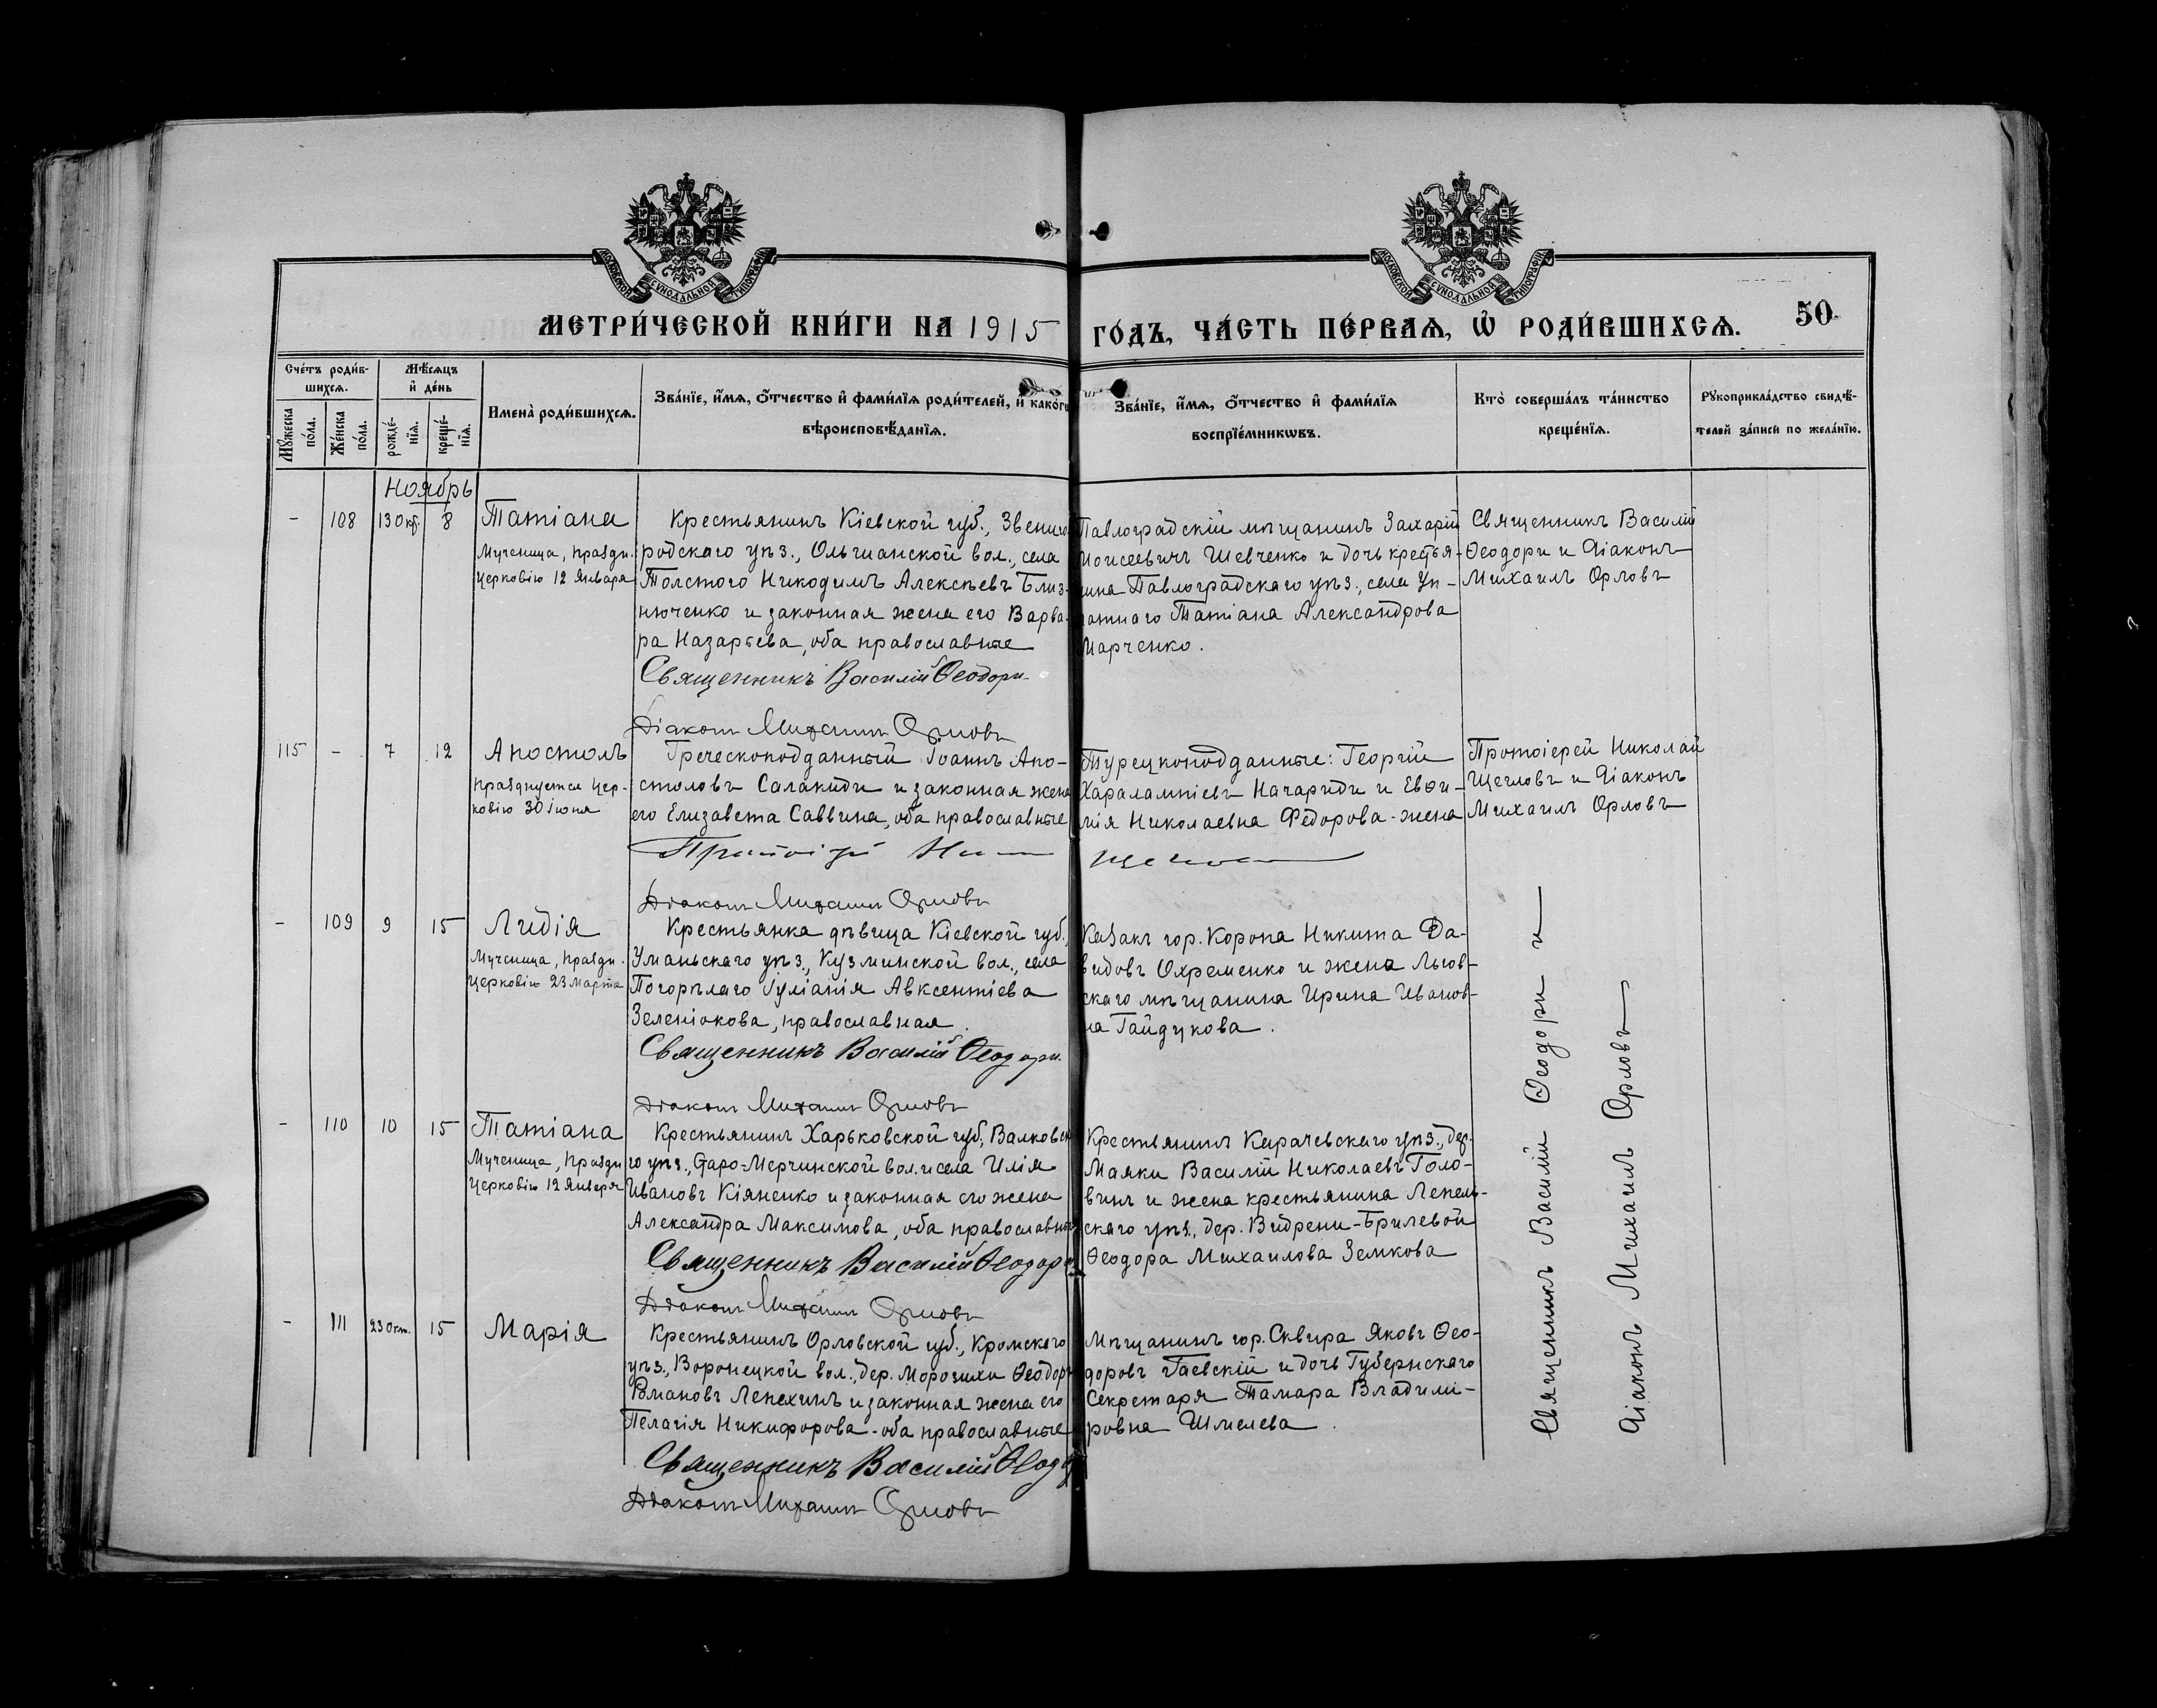 МЕТРИ́ЧЕСКОЙ КНИ́ГИ НА 1915 ГО́ДЪ, ЧА́СТЬ ПЕ́РВАЯ, Ѡ҆ РОДИ́ВШИХСЯ.
50
МОСКОВСКОЙ СѴНОДАЛЬНОЙ ТИПОГРАФІИ
МОСКОВСКОЙ СѴНОДАЛЬНОЙ ТИПОГРАФІИ
Сче́тъ роди́в-
шихся.
Мѣ́сяцъ
и҆ де́нь
Мꙋ́жеска
по́ла.
Же́нска
по́ла.
рожде́-
нїя.
креще́-
нїя.
Имена̀ роди́вшихся.
Зва́нїе, и҆́мя, ѻ҆́тчество и҆ фами́лїя роди́телей, и҆ како́гѡ
вѣроисповѣ́данїя.
Зва́нїе, и҆́мя, ѻ҆́тчество и҆ фами́лїя
воспрїе́мникѡвъ.
Кто̀ соверша́лъ та́инство
креще́нїя.
Рꙋкоприкла́дство свидѣ́-
телей за́писи по жела́нїю.
Ноябрь
- 108 13 Окт. 8
Татіана
Мученица, праздн.
Церковію 12 Января
Крестьянинъ Кіевской губ., Звениго
родскаго уѣз., Ольшанской вол., села
Толстого Никодимъ Алексѣевъ Близ-
нюченко и законная жена его Варва-
ра Назарьева, оба православные
Священникъ Василій Ѳеодори.
Діаконъ Михаилъ Орловъ
Павлоградскій мѣщанинъ Захарій
Моисеевичъ Шевченко и дочь крестья-
нина Павлоградскаго уѣз., села
Татіана Александрова
Марченко.
Священникъ Василій
Ѳеодори и Діаконъ
Михаилъ Орловъ
115 - 7 12
Апостолъ
Празднуется Цер-
ковію 30 Іюня
Греческоподданный Іоаннъ Апо-
столовъ Салакиди и законная жена
его Елизавета Саввина, оба православные
Протоіерей Ник Щегловъ
Діаконъ Михаилъ Орловъ
Турецкоподданные: Георгій
Харалампіевъ Начариди и Евѳи-
мія Николаевна Федорова-жена
Протоіерей Николай
Щегловъ и Діаконъ
Михаилъ Орловъ
- 109 9 15
Лидія
Мученица, праздн.
Церковію 23 Марта
Крестьянка дѣвица Кіевской губ.,
Уманьскаго уѣз., Кузминской вол., села
Погорѣлаго Іуліанія Авксентіева
Зеленюкова, православная.
Священникъ Василій Ѳеодори.
Діаконъ Михаилъ Орловъ
Казакъ гор. Коропа Никита Да-
видовъ Охременко и жена Льгов-
скаго мѣщанина Ирина Иванов-
на Гайдукова.
- 110 10 15
Татіана
Мученица, праздн
Церковію 12 Января
Крестьянинъ Харьковской губ., Валковска
го уѣз., Старо-Мерчинской вол. и села Илія
Ивановъ Кіяненко и законная его жена
Александра Максимова, оба православные
Священникъ Василій Ѳеодори
Діаконъ Михаилъ Орловъ
Крестьянинъ Карачевскаго уѣз., дер.
Маяки Василій Николаевъ Голо-
винъ и жена крестьянина Лепель-
скаго уѣз., дер. Видрени-Брилевой
Ѳеодора Михаилова Земкова
- 111 23 Окт. 15
Марія
Крестьянинъ Орловской губ., Кромскаго
уѣз., Воронецкой вол., дер. Морозихи Ѳеодоръ
Романовъ Лепехинъ и законная жена его
Пелагія Никифорова-оба православные
Священникъ Василій Ѳеодори
Діаконъ Михаилъ Орловъ
Мѣщанинъ гор. Сквира Яковъ Ѳео-
доровъ Гаевскій и дочь Губернскаго
Секретаря Тамара Владими-
ровна Шмелева.
Священникъ Василій Ѳеодори и
Діаконъ Михаилъ Орловъ